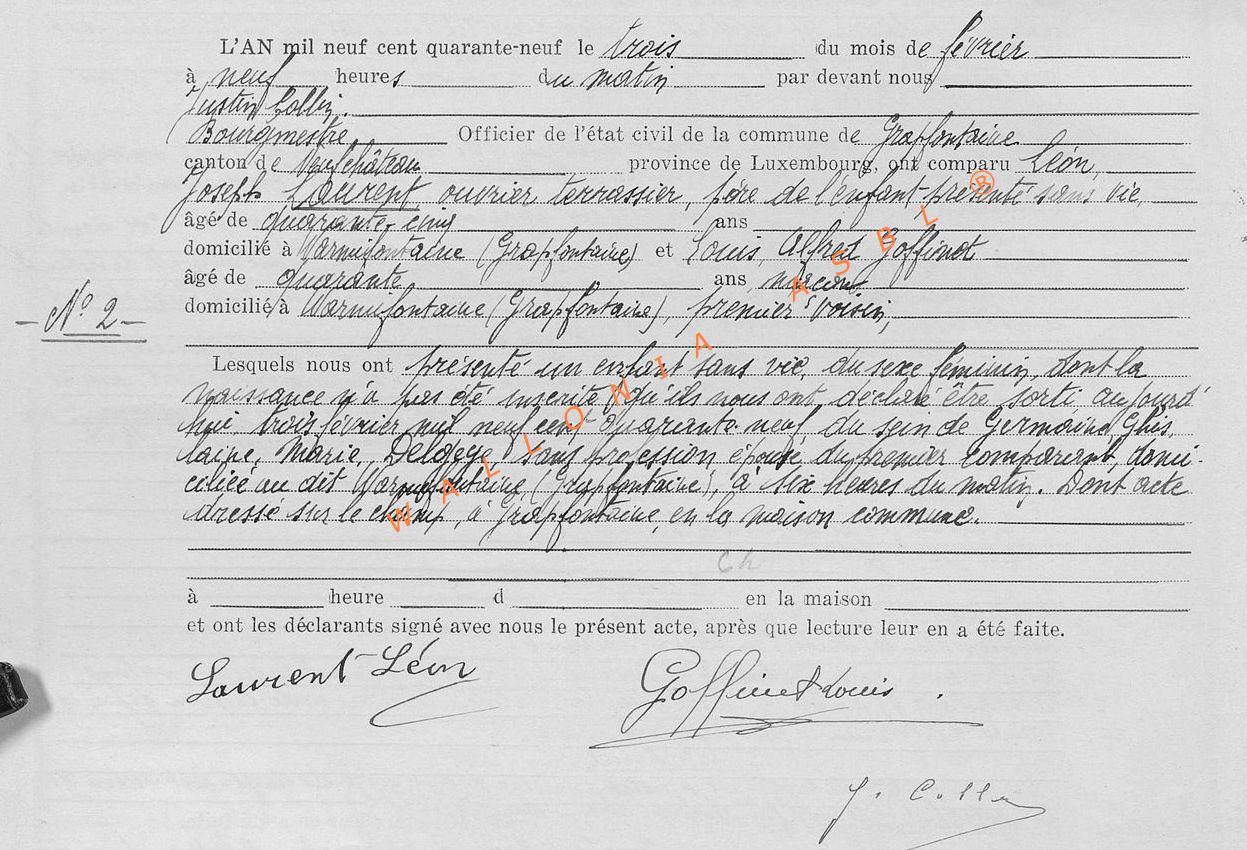 L'AN mil neuf cent quarante-neuf le trois du mois de février
à neuf heures du matin par devant nous
Justin Collin.
Bourgmestre Officier de l'état civil de la commune de Grapfontaine
canton de Neufchâteau province de Luxembourg, ont comparu Léon,
Joseph Laurent ouvrier terrassier, père de l'enfant présenté sans vie,
âgé de quarante-cinq ans
domicilié à Warmifontaine (Grapfontaine) et Louis, Alfred Goffinet
âgé de quarante ans maçon
domicilié à Warmifontaine (Grapfontaine), premier voisin,
- N° 2 -
Lesquels nous ont présenté un enfant sans vie, du sexe féminin, dont la
naissance n'a pas été inscrite, qu'ils nous ont déclaré être sorti aujourd'
hui trois février mil neuf cent quarante-neuf, du sein de Germaine, Ghis
laine, Marie, Delaege sans profession épouse du premier comparant, domi-
ciliée au dit Warmifontaine (Grapfontaine), à six heures du matin. Dont acte
dressé sur le champ, à Grapfontaine, en la maison commune.
Ch
à heure d en la maison
et ont les déclarants signé avec nous le présent acte, après que lecture leur en a été faite.
Laurent Léon Goffinet Louis.
J. Collin
WALLONIA ASBL ®